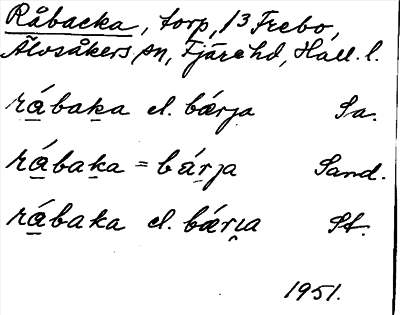 Råbacka, torp, 1/3 Frebo,
Älvsåkers sn, Fjäre hd, Hall. l.
rábaka el. bárja Sa.
rábaka = bárja Sand.
rábaka el. bárja St.
1951.